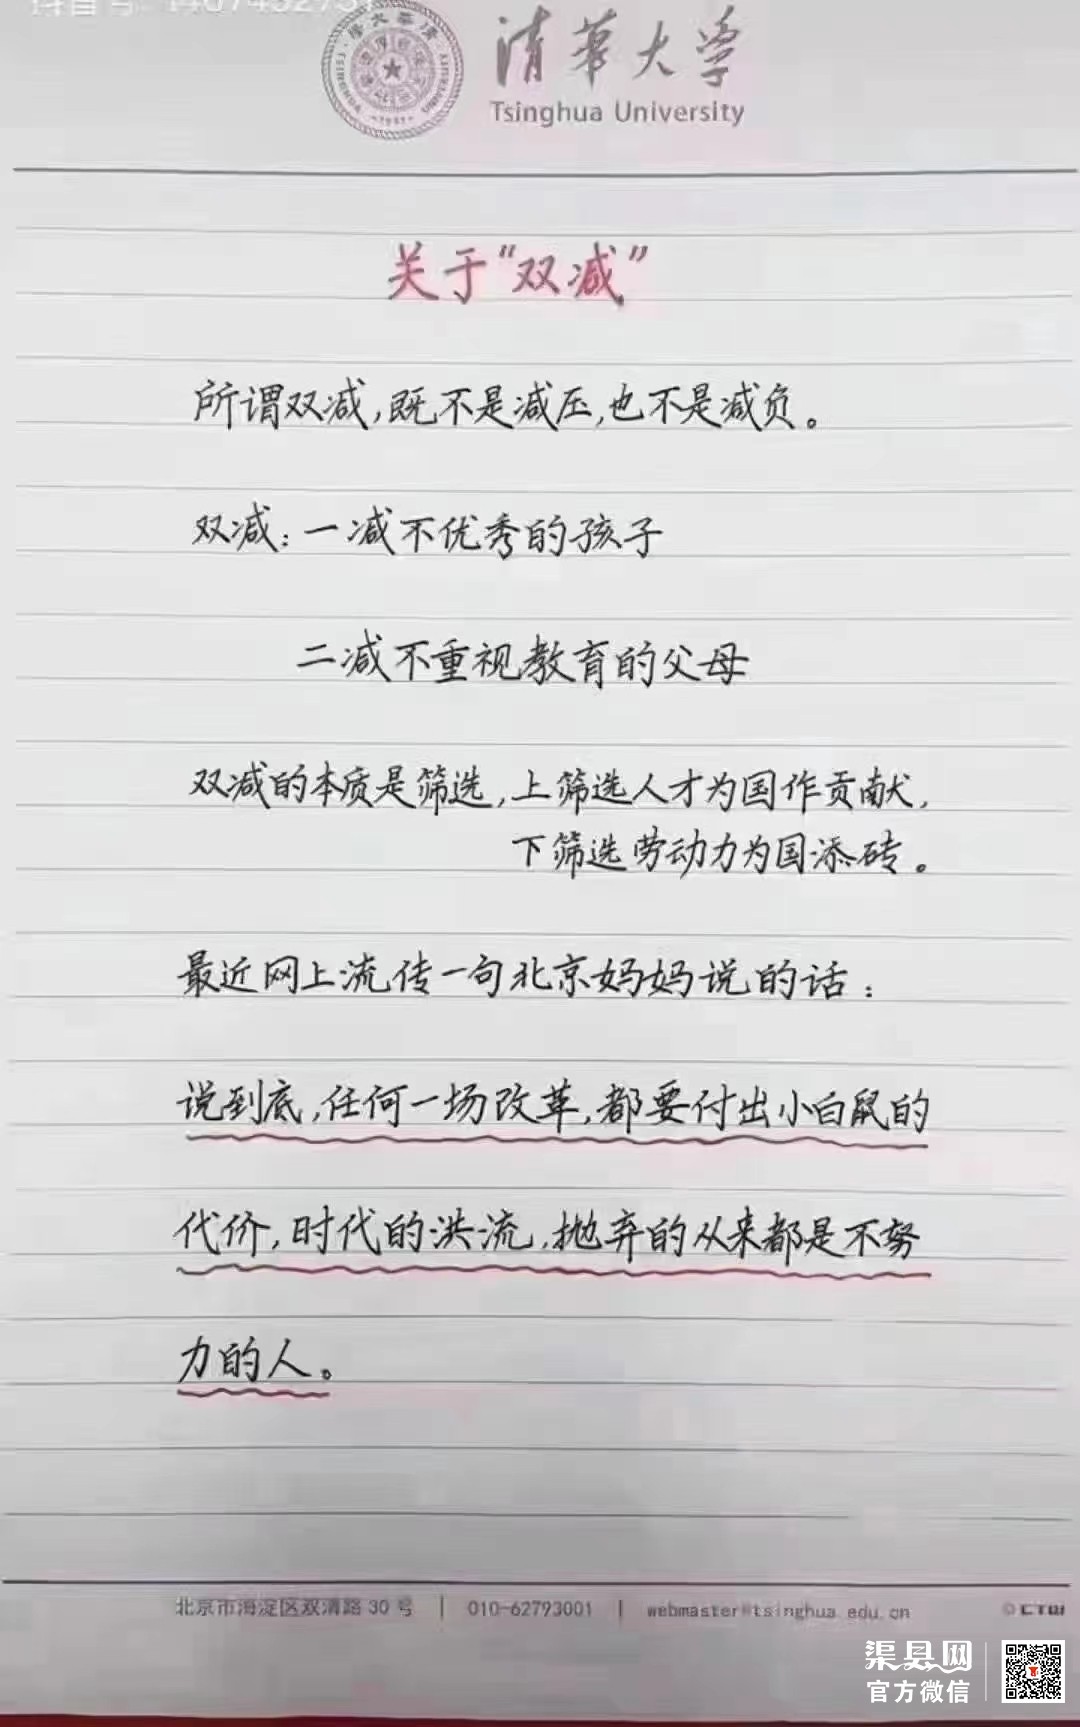 清華大学
Tsinghua University
关于“双减”
所谓双减,既不是减压,也不是减负。
双减:一减不优秀的孩子
二减不重视教育的父母
双减的本质是筛选,上筛选人才为国作贡献,
下筛选劳动力为国添砖。
最近网上流传一句北京妈妈说的话:
说到底,任何一场改革,都要付出小白鼠的
代价,时代的洪流,抛弃的从来都是不努
力的人。
北京市海淀区双清路30号 | 010-62793001 | webmaster@tsinghua.edu.cn
渠县网
官方微信